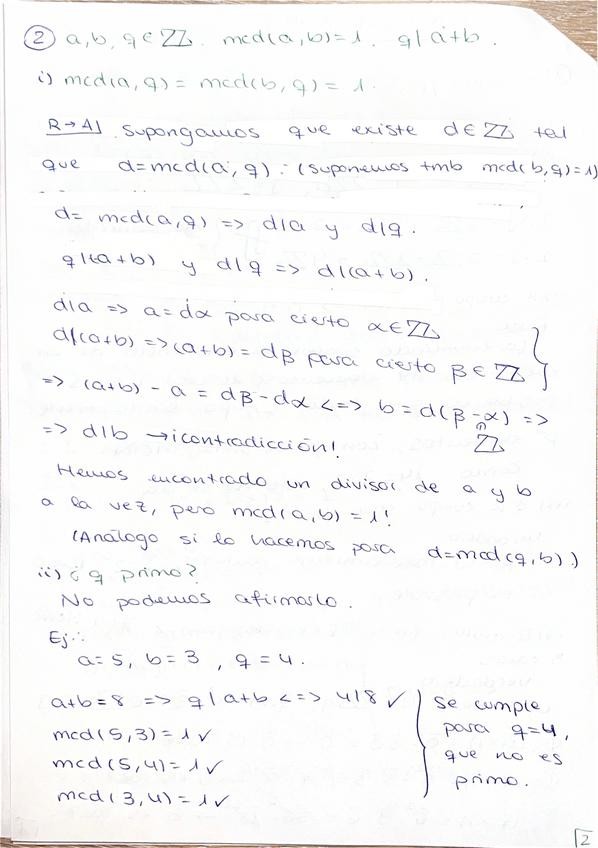 ② a, b, q ∈ ℤ. mcd(a, b)=1. q | a+b.
i) mcd(a, q) = mcd(b, q) = 1.
R→A| Supongamos que existe d∈ℤ tal
que d=mcd(a, q). (suponemos tmb mcd(b,q)=1)
d= mcd(a,q) => d|a y d|q.
q|(a+b) y d|q => d|(a+b).
d|a => a=dα para cierto α∈ℤ
d|(a+b) => (a+b) = dβ para cierto β∈ℤ
=> (a+b) - a = dβ-dα <=> b = d(β-α) =>
∩
ℤ
=> d|b → ¡contradicción!
Hemos encontrado un divisor de a y b
a la vez, pero mcd(a,b) = 1!
(Análogo si lo hacemos para d=mcd(q,b).)
ii) ¿q primo?
No podemos afirmarlo.
Ej.:
a=5, b=3, q=4.
a+b=8 => q|a+b <=> 4|8 ✓
mcd(5,3)=1 ✓
mcd(5,4)=1 ✓
mcd(3,4)=1 ✓
Se cumple
para q=4,
que no es
primo.
2